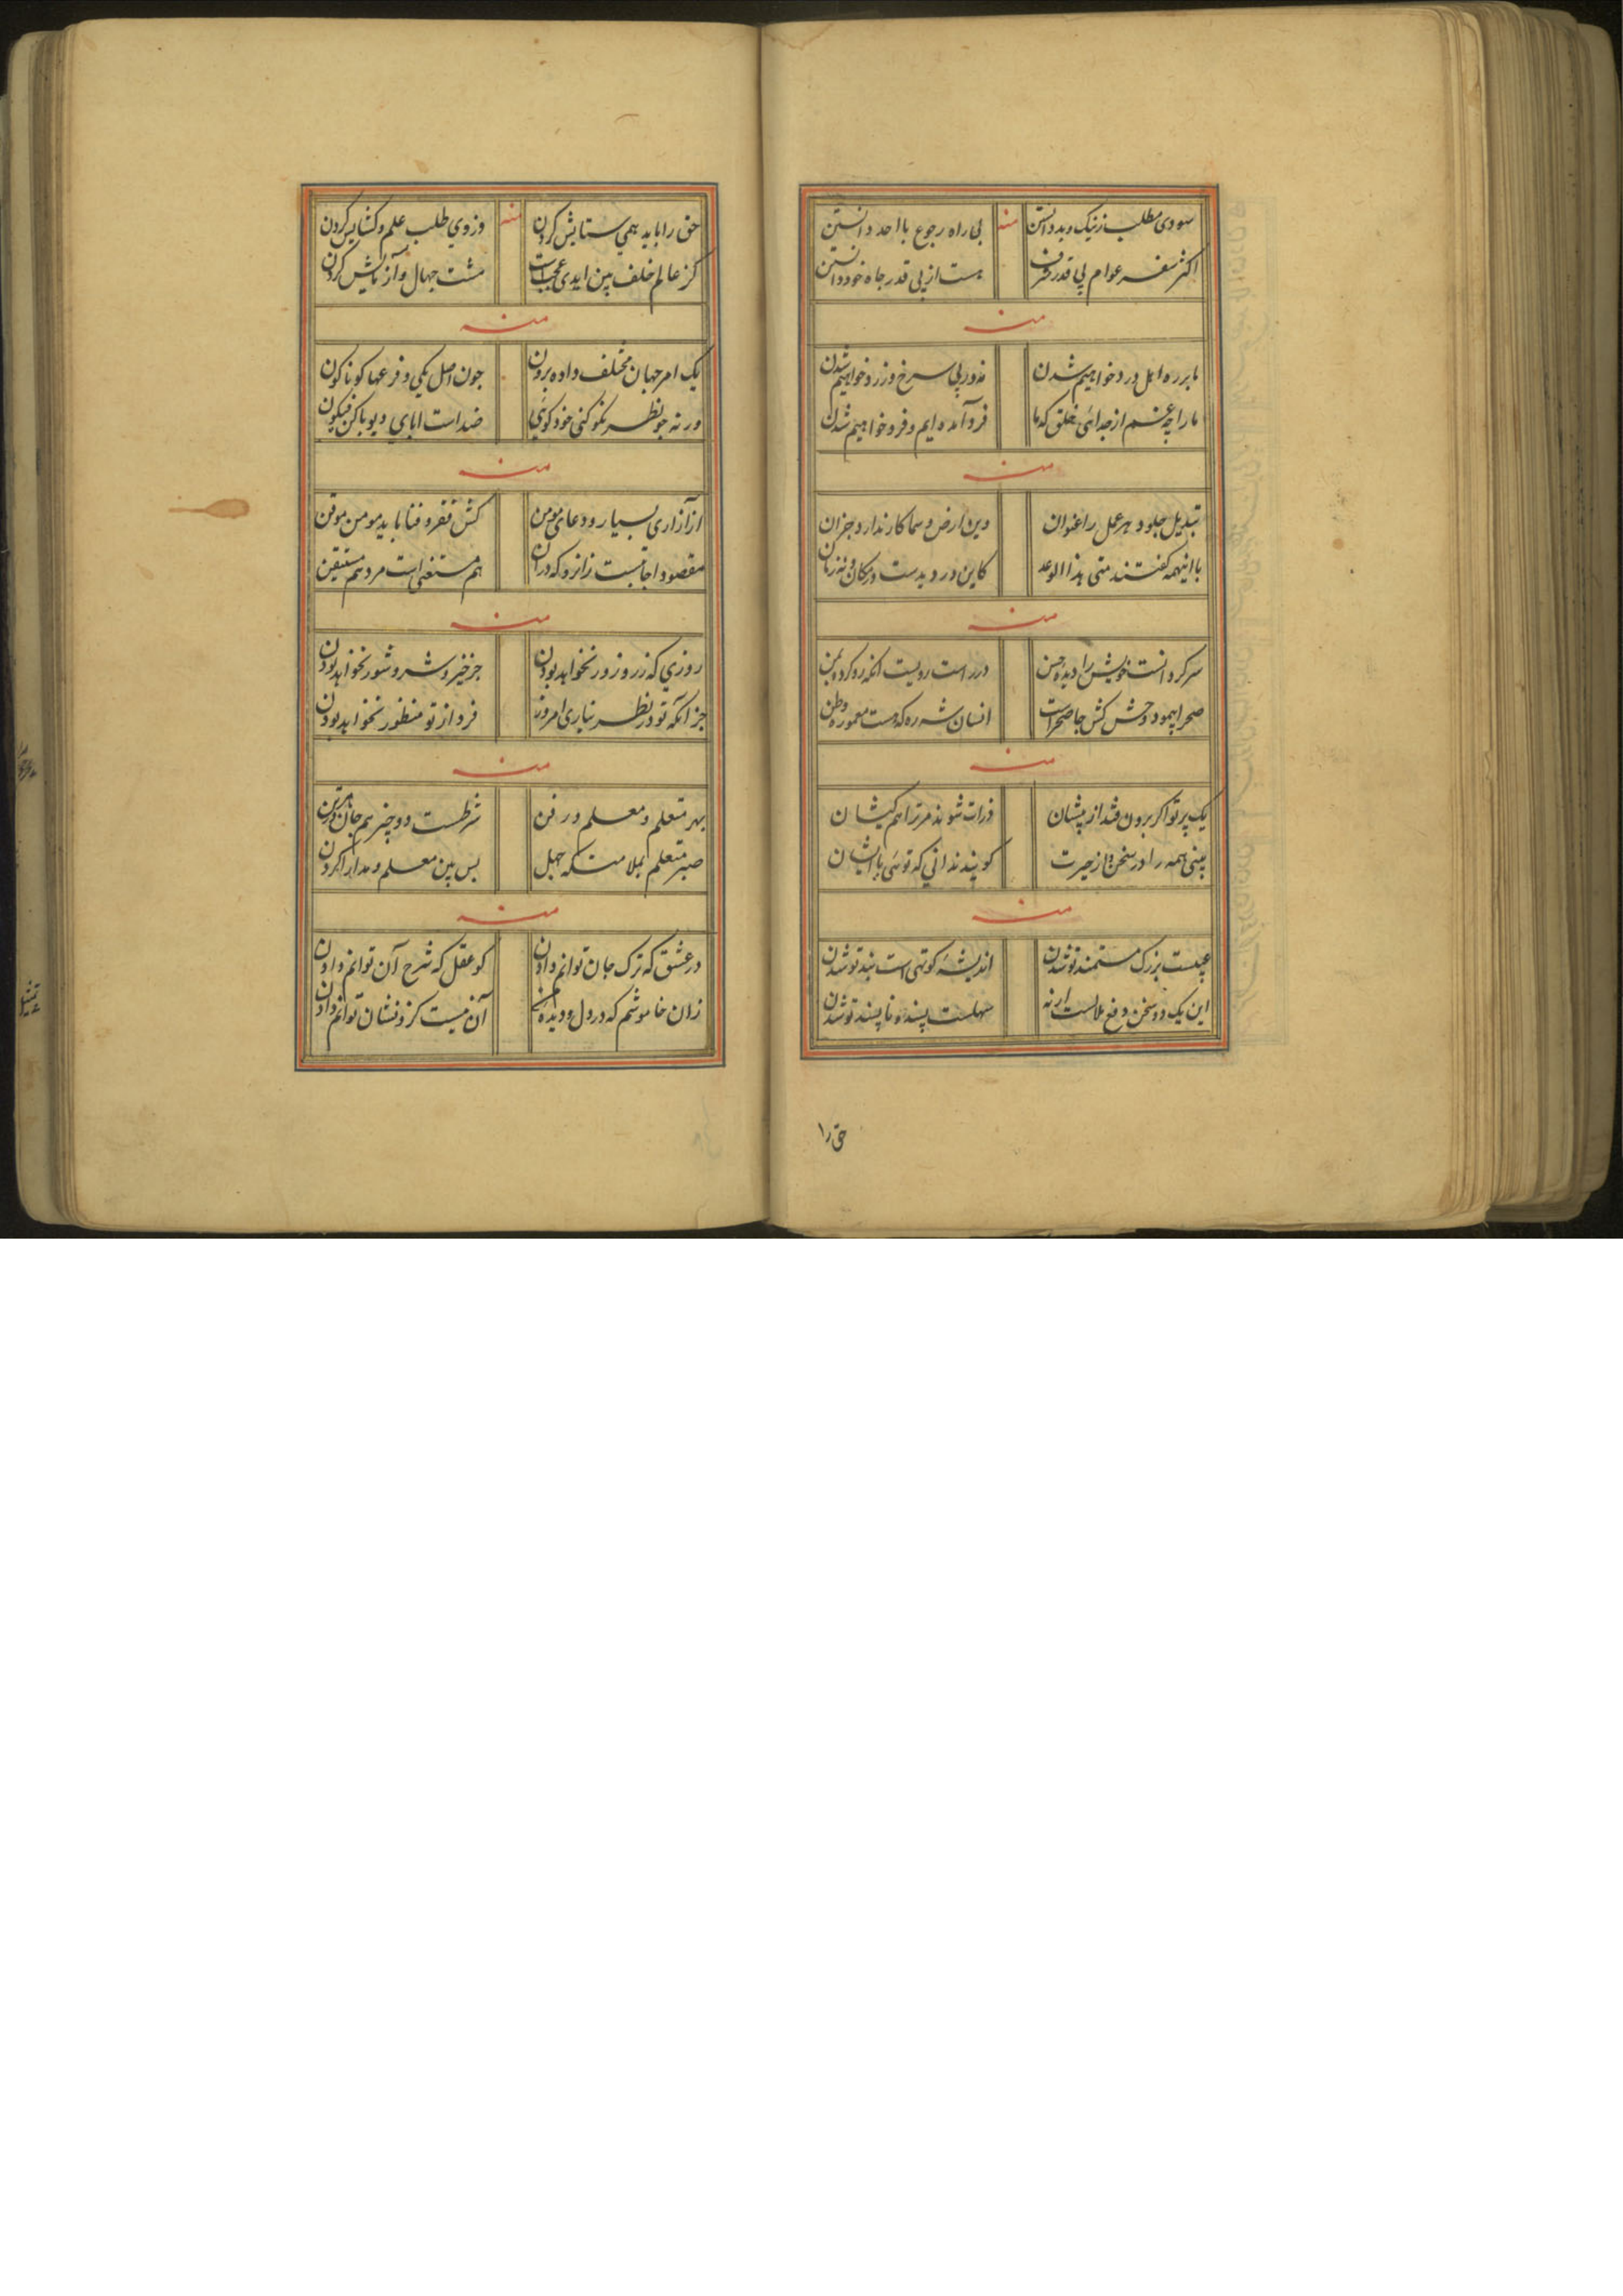 سودی مطلب ز نیک و بد دانستن منه بی راه رجوع با احد دانستن
اکثر سفر عوام بی قدر
هست از پی قدر جاه خود دانستن
منه
ما بر ره اهل درد خواهیم شدن
نه در پی سرخ و زرد خواهیم شدن
ما را چه غم از جدائی خلق که ما
فرد آمده ایم و فرد خواهیم شدن
منه
تبدیل جلود هر عمل را عنوان
وین ارض و سما کار ندارد جز آن
با اینهمه گفتند متی هذا الوعد
کاین در دیدست در مکان و نه زمان
منه
سر کرد انست خویش را دیده حسن
در راست رویست آنکه رو کرده بمن
صحرا پیمود وحش کش جا صحراست
انسان شهره که هست معموره وطن
منه
یک پرتو اگر برون فتد از پیشان
ذرات شوند مر ترا هم کیشان
بینی همه را در سخن و از حیرت
گویند ندانی که توئی یا ایشان
منه
عیبست بزرگ مستمند تو شدن
اندیشهٔ کوتهی است بند تو شدن
این یک دو سخن دفع ملالست ار نه
سهلست پسند و ناپسند تو شدن
حق را
حق را باید همی ستایش کردن منه وز وی طلب علم و گشایش کردن
کز عالم خلف بین ایدی عجب است
مشت جهال و آزمایش کردن
منه
یک امر جهان مختلف داده برون
چون اصل یکی و فرعها گوناگون
ور نه چو نظر نکو کنی خود گوئی
ضد است ابای دیو با کن فیکون
منه
از آزاری بسیار و دعای مومن
کش فقر و فنا باید مومن موقن
مقصود اجابتست زانرو که در آن
هم مستغنی است مرد هم مستیقن
منه
روزی که زر و زور نخواهد بودن
جز خیر و شر و شور نخواهد بودن
جز آنکه تو در نظر نیاری امروز
فردا ز تو منظور نخواهد بودن
منه
بهر متعلم و معلم در فن
شرطست دو چیز هم
صبر متعلم بملامتکه جهل
پس بین معلم و مدارا کردن
منه
در عشق که ترک جان توانم دادن
کو عقل که شرح آن توانم دادن
زان خاموشم که در دل و دیده
آن نیست کزو نشان توانم دادن